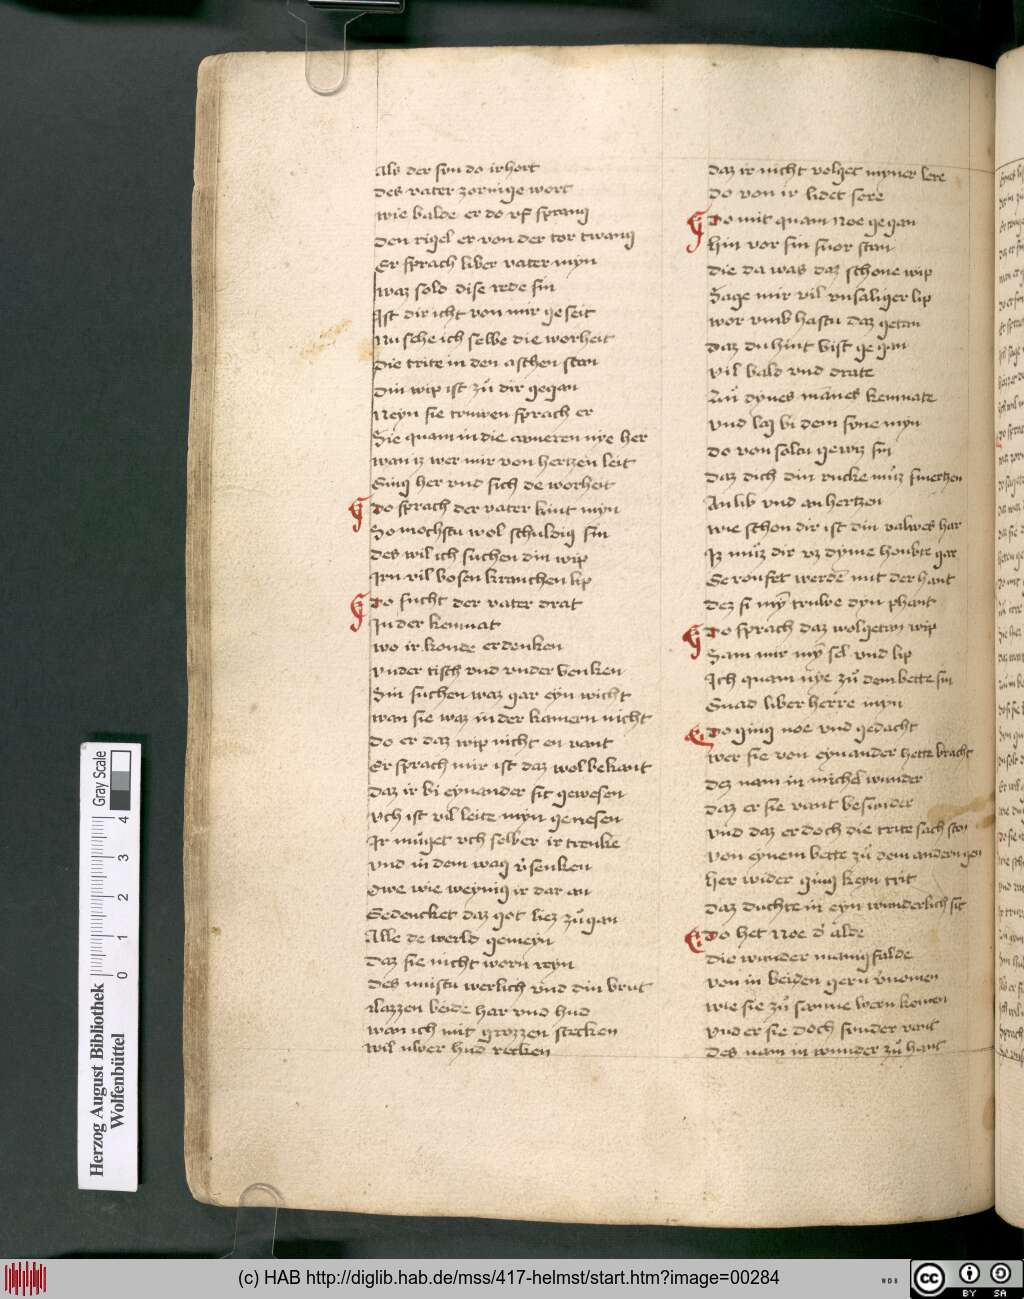 Als der son do irhort
des vater zornige wort
wie balde er do vf sprang
den rigel er von der tor twang
Er sprach liber vater myn
waz solo dise rede sin
Ist dir icht von mir geseit
Nu sehe ich selbe die worheit
die trite in den aschen stan
din wip ist zů dir gegan
Neyn sie truwen sprach er
Sie quam in die nye her
wan iz wer mir von hertzen leit
Ging her vnd sich de worheit
Do sprach der vater kint myn
So mochstu wol schuldig sin
des wil ich suchen din wip
Irn vil bosen krancken lip
Do sucht der vater drat
In der kemnat
wo ir konde erdenken
vnder tisch vnd vnder benken
Sin suchen waz gar eyn wicht
wan sie waz in der kamern nicht
do er daz wip nicht en vant
Er sprach mir ist daz wol bekant
daz ir bi eynander sit gewesen
vch ist vil leite myn genesen
Ir muget vch selber ir trenke
vnd in dem wag v̓senken
Owe wie weynig ir dar an
Gedencket daz got liez zů gan
Alle de werld gemeyn
daz sie nicht worn reyn
des mustu werlich vnd din brut
Lazzen beide har vnd hud
wan ich mit grozzen stecken
wil uwer hud recken
daz ir nicht volget myner lere
do von ir lidet sere
Do mit quam Noe gegan
hin vor sin snor stan
die da was daz schone wip
Sage mir vil vnsaliger lip
wor vmb hastu daz getan
daz du hint bist gegan
vil bald vnd drate
Zů dynes mānes kemnate
vnd lag bi dem sone myn
do von saltu gewiz sin
daz dich din rucke můz smertzen
An lib vnd an hertzen
wie schon dir ist din valwes har
Iz můz dir vz dyme houbte gar
Geroufet werdē mit der hant
dez si mȳ truwe dyn phant
Do sprach daz wolgetan wip
Sam mir mȳ sel vnd lip
Ich quam nye zů dem bette sin
Gnad liber herre myn
Do ging noe vnd gedacht
wer sie von eynander hette bracht
dez nam in michel wunder
daz er sie vant besunder
vnd daz er doch die trite sach stan
von eynem bette zů dem andern gen
her wider ging keyn trit
daz duchte in eyn wunderlich sit
Do het Noe d̓ alde
die wunder manigfalde
von in beiden gern v̓nomen
wie sie zů samne wern komen
vnd er sie doch sunder vant
des nam in wunder zů hant
Herzog August Bibliothek
Wolfenbüttel
0 1 2 3 4
Gray Scale
(c) HAB http://diglib.hab.de/mss/417-helmst/start.htm?image=00284
WDB
cc
BY SA